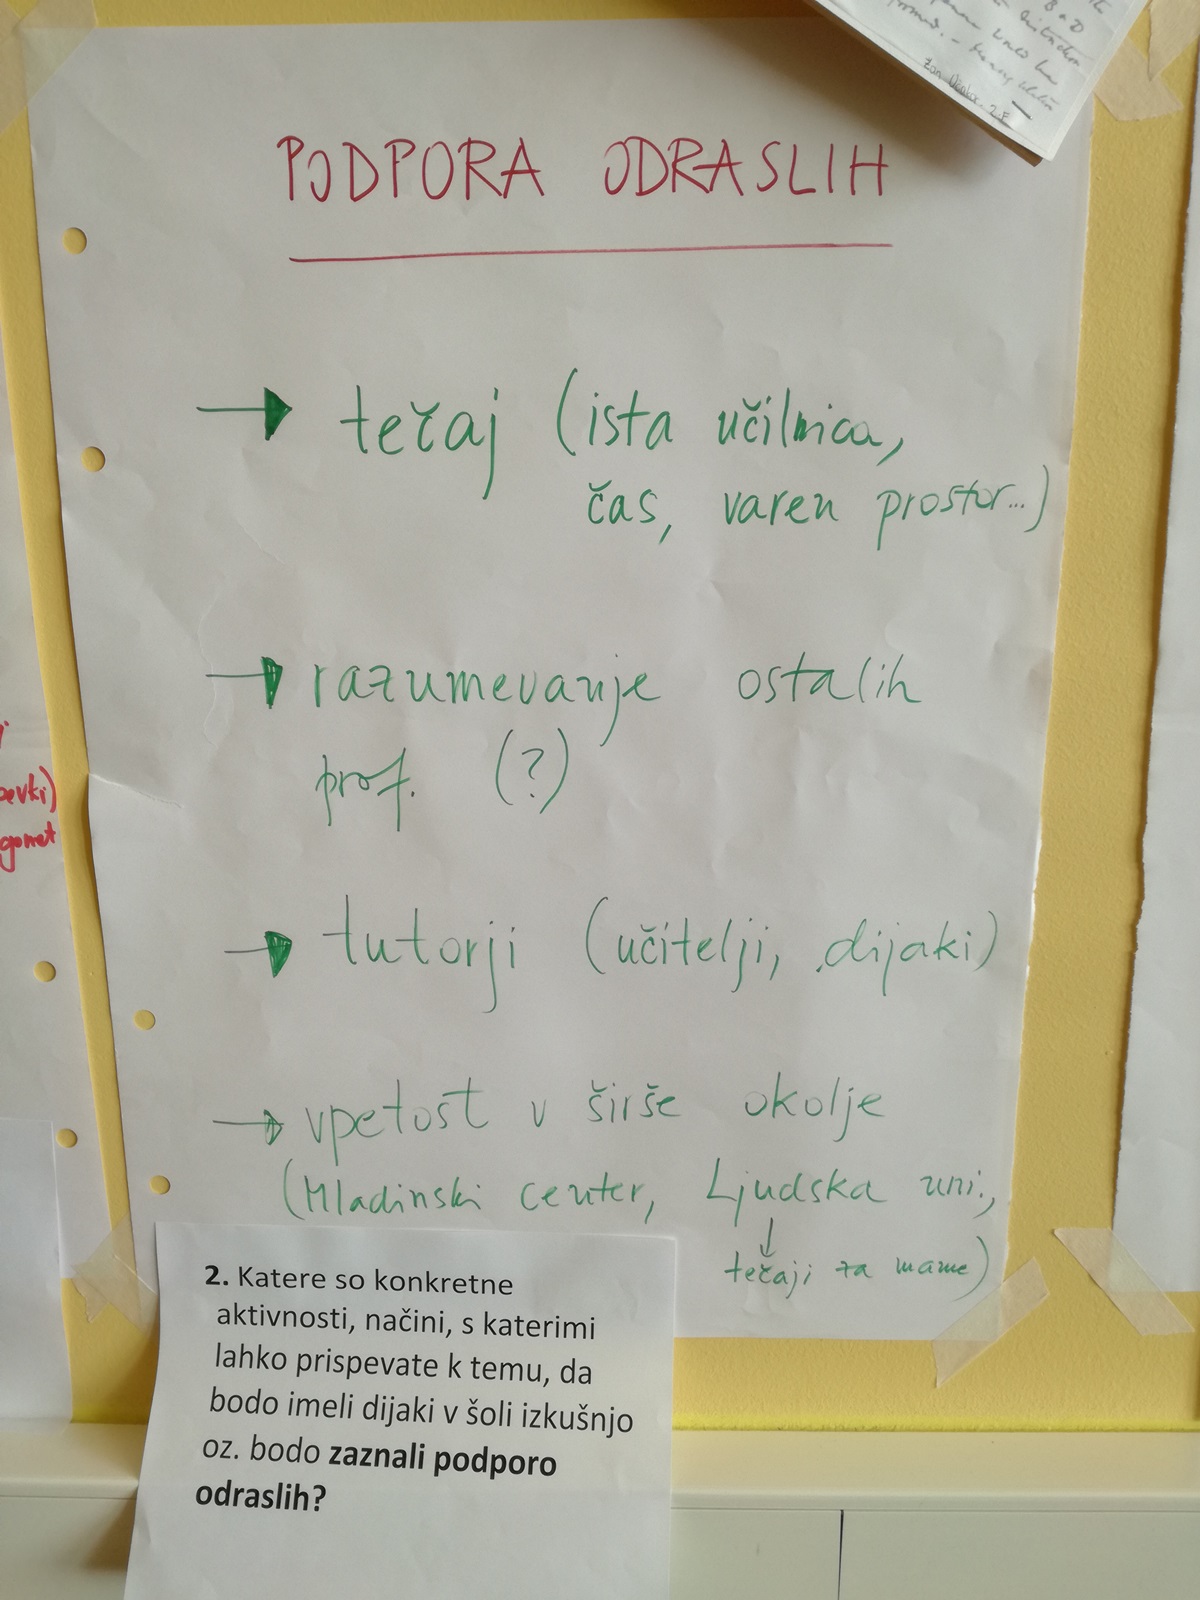 PODPORA ODRASLIH
→ tečaj (ista učilnica,
čas, varen prostor...)
→ razumevanje ostalih
prof. (?)
→ tutorji (učitelji, dijaki)
→ vpetost v širše okolje
(Mladinski center, Ljudska uni.,
↓
tečaji za mame)
2. Katere so konkretne
aktivnosti, načini, s katerimi
lahko prispevate k temu, da
bodo imeli dijaki v šoli izkušnjo
oz. bodo zaznali podporo
odraslih?